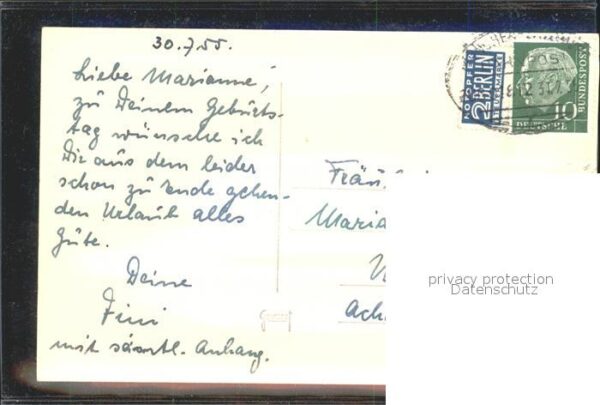 30.7.55.
Liebe Marianne!
zu Deinem Geburts-
tag wünsche ich
Dir aus dem leider
schon zu Ende gehen-
den Urlaub alles
Gute.
Deine
Fini
mit sämtl. Anhang.
NOTOPFER
2 BERLIN
STEUERMARKE
10
DEUTSCHE
BUNDESPOST
Fräu
Maria
Ach
privacy protection
Datenschutz